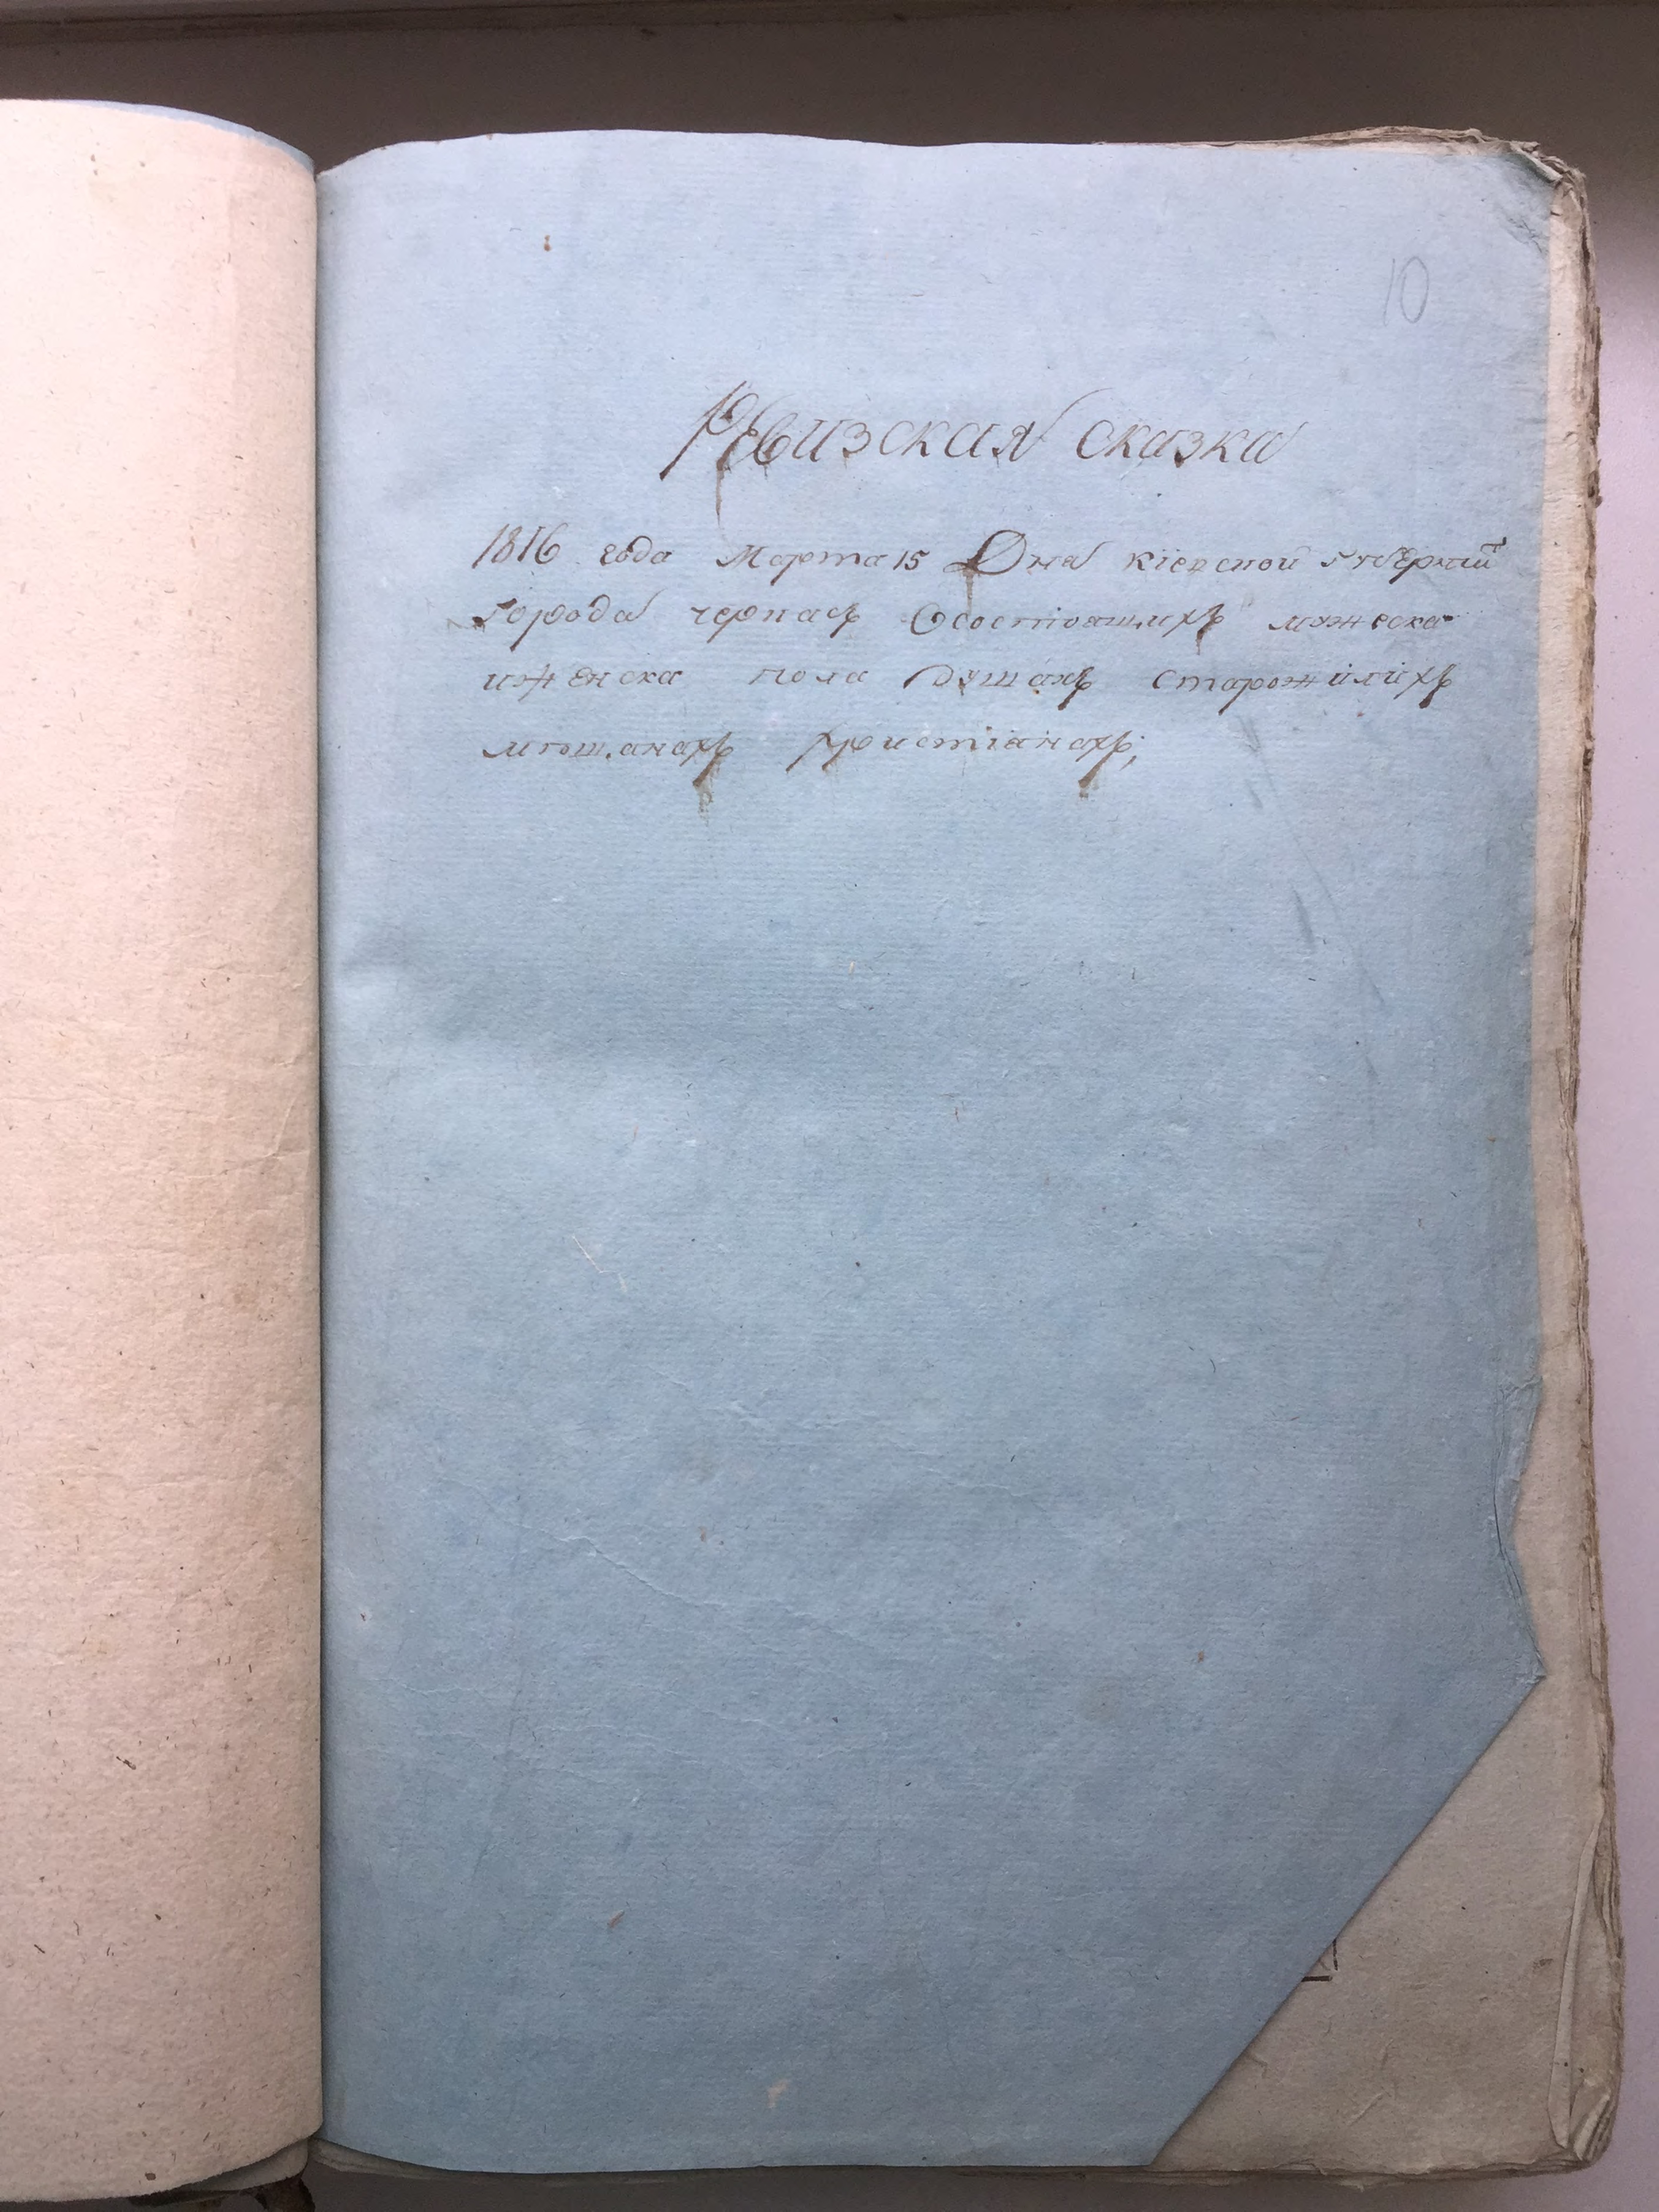 10
Ревизская сказка
1816 года Марта 15 Дня Кіевской губерніи
города черкасъ Осостоящихъ мужеска
иженска пола душахъ старожилихъ
мещанахъ христіанахъ;